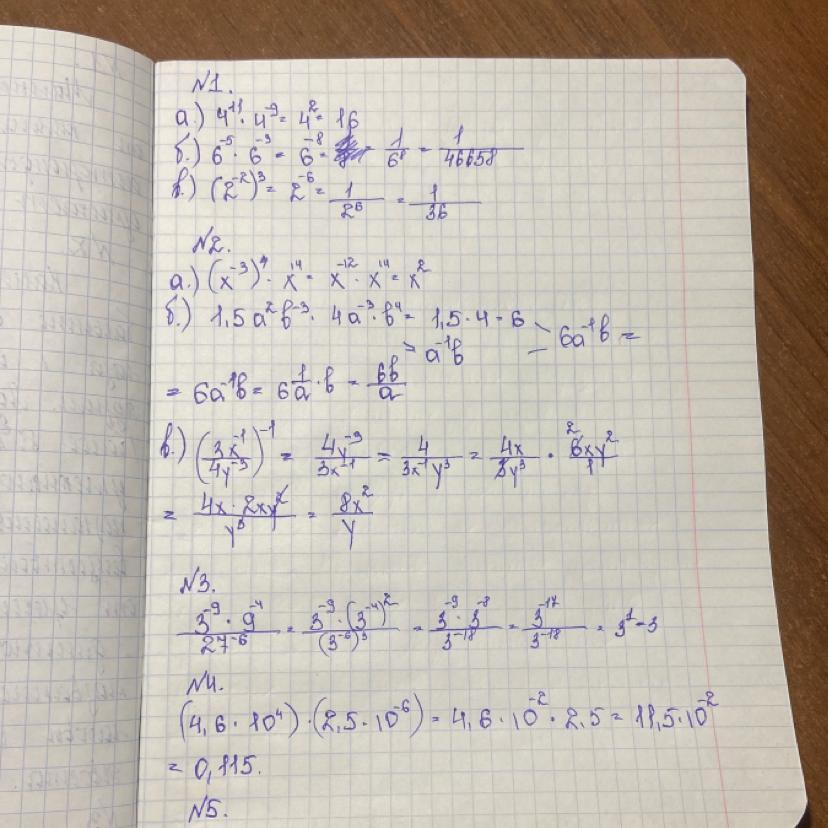 №1.
а.) 4¹¹ · 4⁻⁹ = 4² = 16
б.) 6⁻⁵ · 6⁻³ = 6⁻⁸ = = 1/6⁸ = 1/46658
в.) (2⁻²)³ = 2⁻⁶ = 1/2⁶ = 1/36
№2.
а.) (x⁻³)⁴ · x¹⁴ = x⁻¹² · x¹⁴ = x²
б.) 1,5a²b⁻³ · 4a⁻³ · b⁴ = 1,5 · 4 = 6
= a⁻¹b = 6a⁻¹b =
= 6a⁻¹b = 6 1/a · b = 6b/a
в.) (3x⁻¹/4y⁻³)⁻¹ = 4y⁻³/3x⁻¹ = 4/3x⁻¹y³ = 4x/3y³ · 6xy²/1 2
= 4x · 2xy²/y³ = 8x²/y
№3.
3⁻⁹ · 9⁻⁴/27⁻⁶ = 3⁻⁹ · (3⁻⁴)²/(3⁻⁶)³ = 3⁻⁹ · 3⁻⁸/3⁻¹⁸ = 3⁻¹⁷/3⁻¹⁸ = 3¹ = 3
№4.
(4,6 · 10⁴) · (2,5 · 10⁻⁶) = 4,6 · 10⁻² · 2,5 = 11,5 · 10⁻²
= 0,115.
№5.